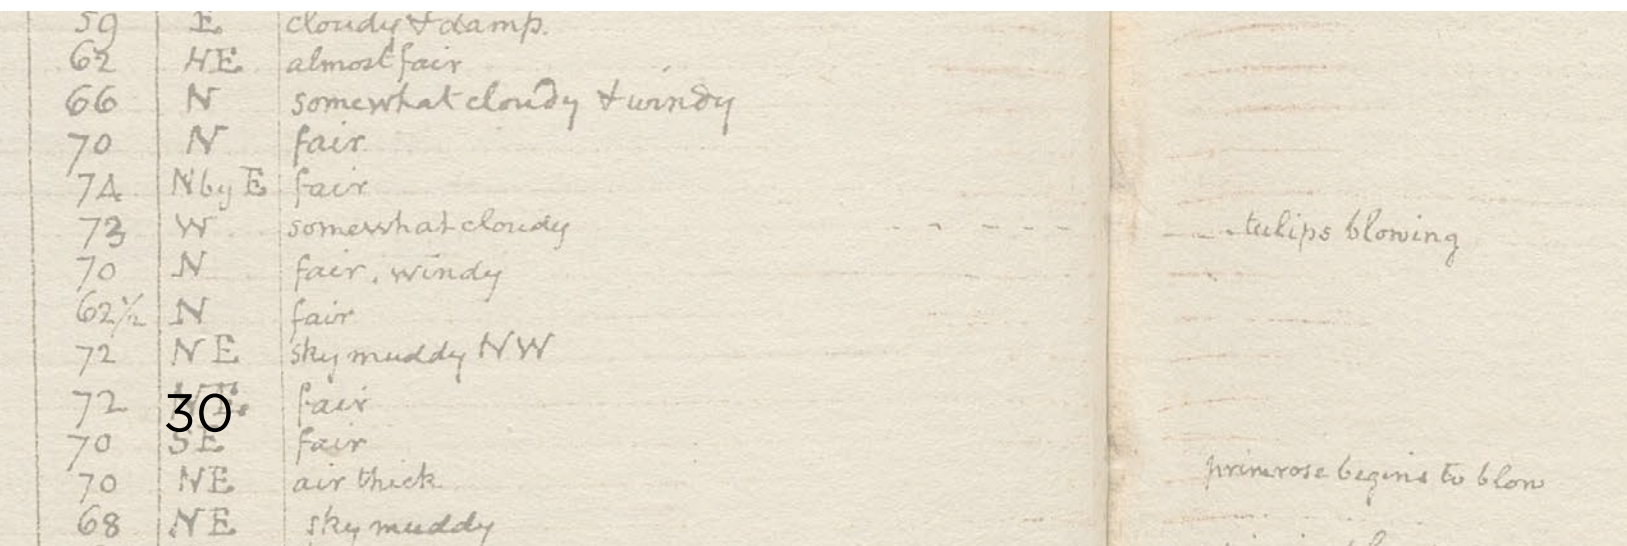 59 E cloudy & damp.
62 NE almost fair
66 N somewhat cloudy & windy
70 N fair
74 N by E fair
73 W somewhat cloudy - - - - - - tulips blowing
70 N fair. windy
62½ N fair
72 NE sky muddy NW
72 NE. fair
30
70 SE fair
70 NE air thick primrose begins to blow
68 NE sky muddy